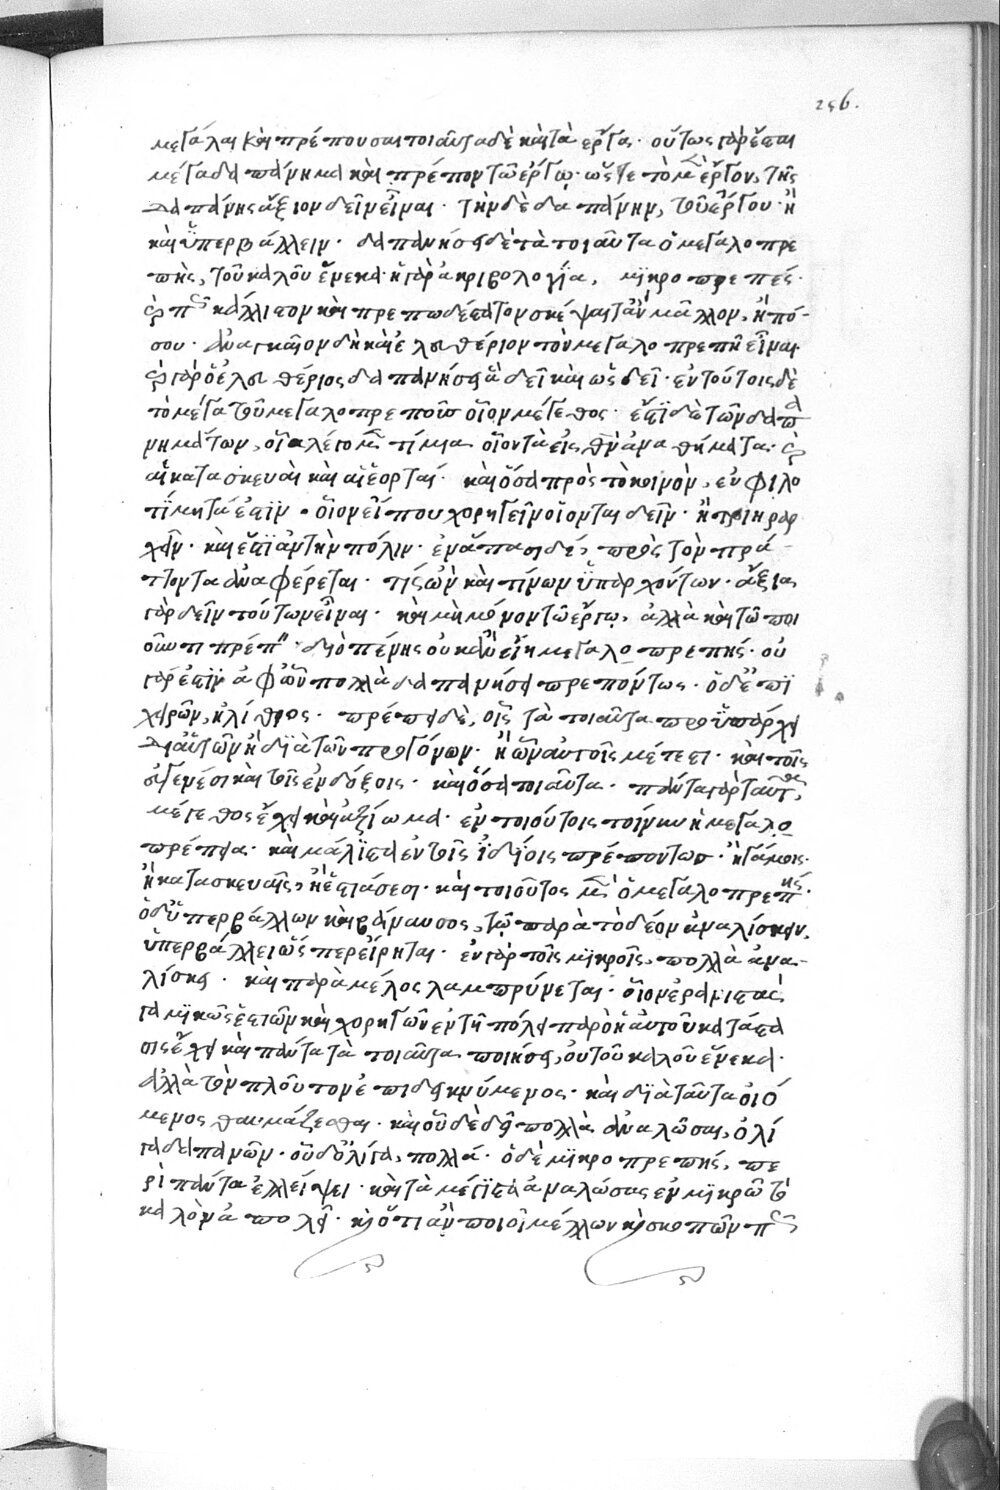 256.
μεγάλαι καὶ πρέπουσαι τοιαῦτα δὲ καὶ τὰ ἔργα· οὕτως γὰρ ἔσται
μέγα δαπάνημα καὶ πρέπον τῶ ἔργω· ὥστε τὸ μὲν ἔργον, τῆς
δαπάνης ἄξιον δεῖν εἶναι· τὴν δὲ δαπάνην, τοῦ ἔργου· ἢ
καὶ ὑπερβάλλειν· δαπανήσει δὲ τὰ τοιαῦτα ὁ μεγαλοπρε
πὴς, τοῦ καλοῦ ἕνεκα· ἡ γὰρ ἀκριβολογία, μικροπρεπές·
καὶ πῶς κάλλιστον καὶ πρεπωδέστατον σκέψαιτ' ἂν μᾶλλον, ἢ πό-
σου· ἀναγκαῖον δὴ καὶ ἐλευθέριον τὸν μεγαλοπρεπῆ εἶναι·
καὶ γὰρ ὁ ἐλευθέριος δαπανήσει ἃ δεῖ καὶ ὡς δεῖ· ἐν τούτοις δὲ
τὸ μέγα τοῦ μεγαλοπρεποῦς οἷον μέγεθος· ἔστι δὲ τῶν δαπα
νημάτων, οἷα λέγομεν τίμια οἷον τὰ εἰς θεοὺς ἀναθήματα· καὶ
αἱ κατασκευαὶ καὶ αἱ ἑορταί· καὶ ὅσα πρὸς τὸ κοινὸν, εὐφιλο
τίμητά ἐστιν· οἷον εἴ που χορηγεῖν οἴονται δεῖν· ἢ τριηραρ
χεῖν· καὶ ἑστιᾶν τὴν πόλιν· ἐν ἅπασι δέ, πρὸς τὸν πρά-
ττοντα ἀναφέρεται· τίς ὢν καὶ τίνων ὑπαρχόντων· ἄξια
γὰρ δεῖν τούτων εἶναι· καὶ μὴ μόνον τῶ ἔργω, ἀλλὰ καὶ τῶ ποι
οῦντι πρέπειν· διὸ πένης οὐκ ἂν εἴη μεγαλοπρεπής· οὐ
γάρ ἐστιν ἀφ' ὧν πολλὰ δαπανήσει πρεπόντως· ὁ δ' ἐπι
χειρῶν, ἠλίθιος· πρέπει δὲ, οἷς τὰ τοιαῦτα προϋπάρχει
δι' αὑτῶν ἢ διὰ τῶν προγόνων· ἢ ὧν αὐτοῖς μέτεστι· καὶ τοῖς
εὐγενέσι καὶ τοῖς ἐνδόξοις· καὶ ὅσα τοιαῦτα· πάντα γὰρ ταῦτα,
μέγεθος ἔχει καὶ ἀξίωμα· ἐν τοιούτοις τοίνυν ἡ μεγαλο
πρέπεια· καὶ μάλιστα ἐν τοῖς ἰδίοις πρέποντως· ἢ γάμοις·
ἢ κατασκευαῖς, ἢ ἑστιάσεσι· καὶ τοιοῦτος μὲν ὁ μεγαλοπρεπής·
ὁ δ' ὑπερβάλλων καὶ βάναυσος, τῶ παρὰ τὸ δέον ἀναλίσκειν,
ὑπερβάλλει ὥσπερ εἴρηται· ἐν γὰρ τοῖς μικροῖς, πολλὰ ἀνα-
λίσκει· καὶ παρὰ μέλος λαμπρύνεται· οἷον ἐρανιστὰς
γαμικῶς ἑστιῶν καὶ χορηγῶν ἐν τῆ πόλει παρ' ὃ ἡ αὐτοῦ κατάστα
σις ἔχει καὶ πάντα τὰ τοιαῦτα ποιήσει, οὐ τοῦ καλοῦ ἕνεκα·
ἀλλὰ τὸν πλοῦτον ἐπιδεικνύμενος· καὶ διὰ ταῦτα οἰό
μενος θαυμάζεσθαι· καὶ οὗ δὲ δεῖ πολλὰ ἀναλῶσαι, ὀλί
γα δαπανῶν· οὗ δ' ὀλίγα, πολλά· ὁ δὲ μικροπρεπής, πε
ρὶ πάντα ἐλλείψει· καὶ τὰ μέγιστα ἀναλώσας ἐν μικρῶ τὸ
καλὸν ἀπολεῖ· καὶ ὅτι ἂν ποιοῖ μέλλων καὶ σκοπῶν πῶς